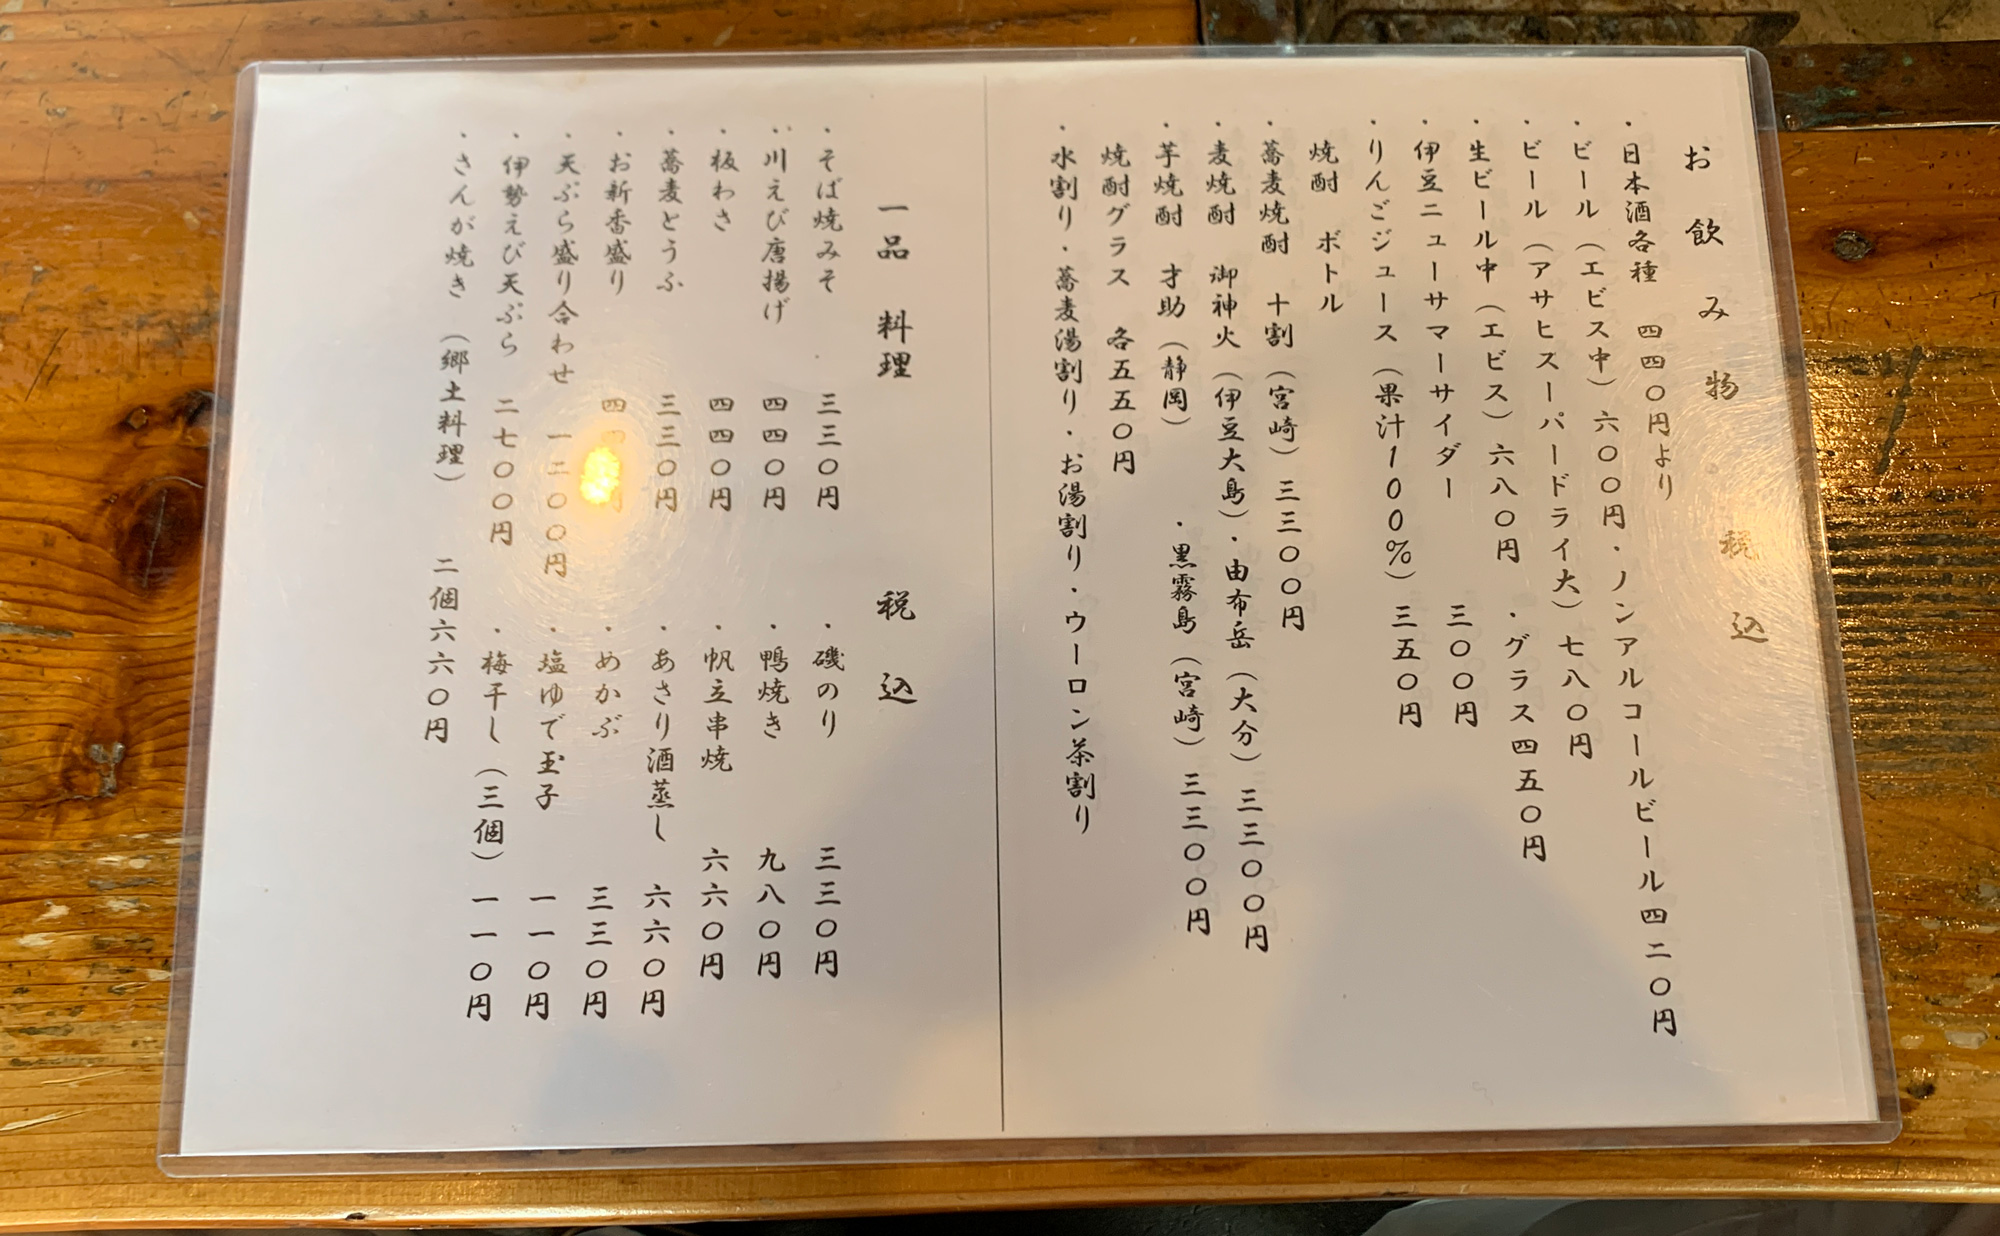 お飲み物 税込
・日本酒各種 四四〇円より
・ビール（エビス中）六〇〇円・ノンアルコールビール四二〇円
・ビール（アサヒスーパードライ大）七八〇円
・生ビール中（エビス）六八〇円 ・グラス四五〇円
・伊豆ニューサマーサイダー 三〇〇円
・りんごジュース（果汁100%）三五〇円
焼酎 ボトル
・蕎麦焼酎 十割（宮崎）三三〇〇円
・麦焼酎 御神火（伊豆大島）・由布岳（大分）三三〇〇円
・芋焼酎 才助（静岡） ・黒霧島（宮崎）三三〇〇円
焼酎グラス 各五五〇円
・水割り・蕎麦湯割り・お湯割り・ウーロン茶割り
一品 料理 税込
・そば焼みそ 三三〇円 ・磯のり 三三〇円
・川えび唐揚げ 四四〇円 ・鴨焼き 九八〇円
・板わさ 四四〇円 ・帆立串焼 六六〇円
・蕎麦とうふ 三三〇円 ・あさり酒蒸し 六六〇円
・お新香盛り ・めかぶ 三三〇円
・天ぷら盛り合わせ 一二〇〇円 ・塩ゆで玉子 一一〇円
・伊勢えび天ぷら 二七〇〇円 ・梅干し（三個）一一〇円
・さんが焼き（郷土料理） 二個六六〇円